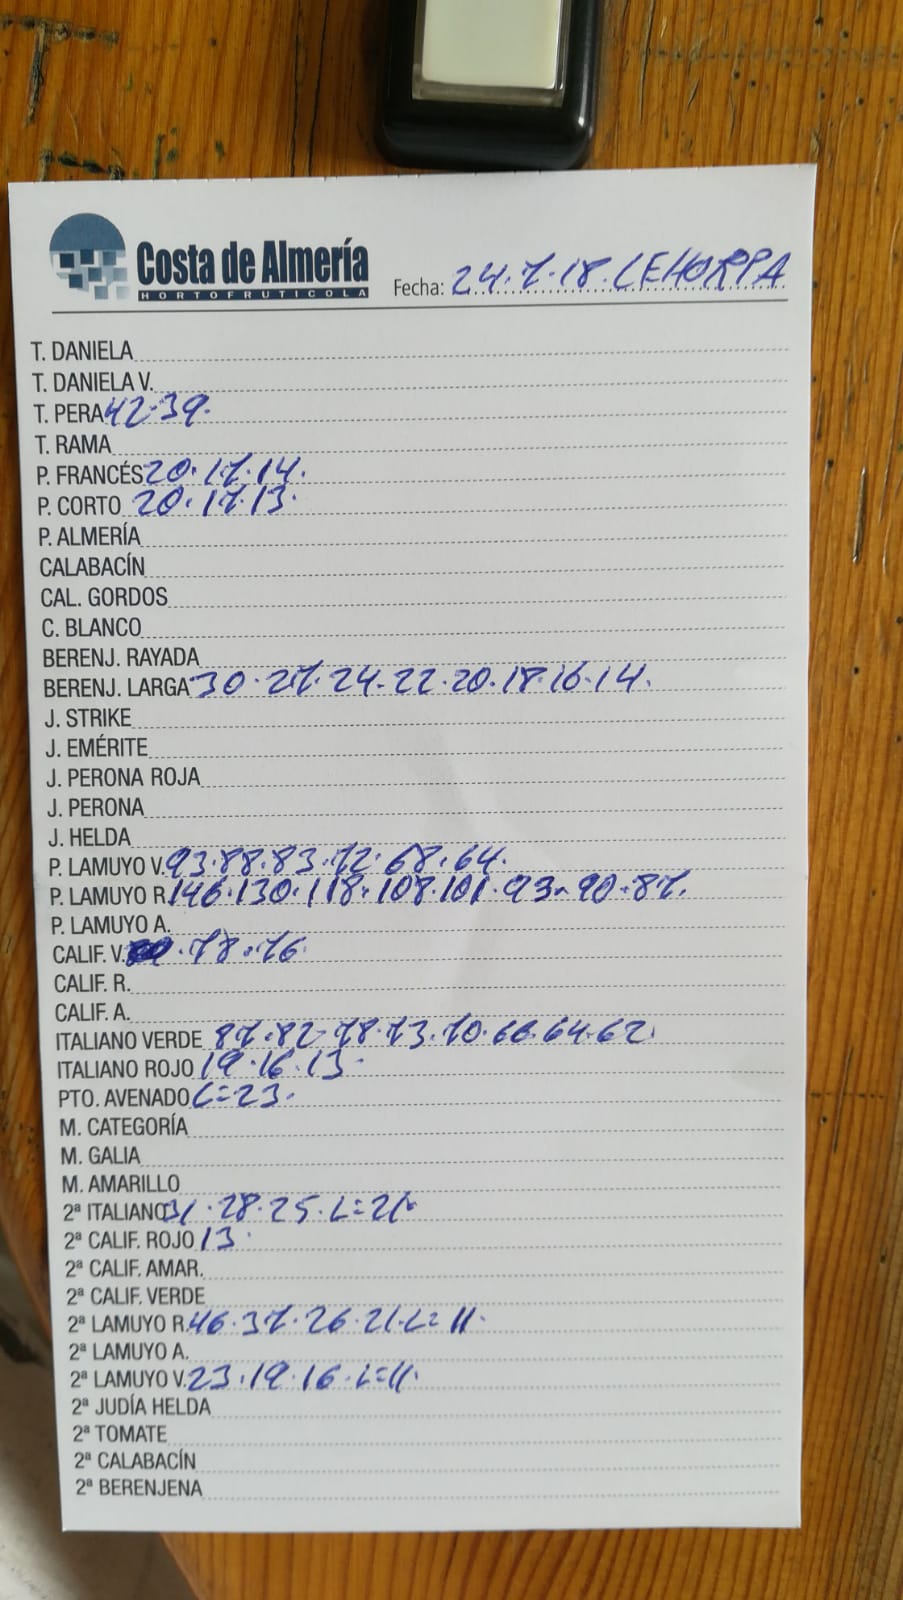 Costa de Almería
HORTOFRUTICOLA
Fecha: 24.7.18. LEHORPA
T. DANIELA
T. DANIELA V.
T. PERA 42.39.
T. RAMA
P. FRANCÉS 20.17.14.
P. CORTO 20.17.13.
P. ALMERÍA
CALABACÍN
CAL. GORDOS
C. BLANCO
BERENJ. RAYADA
BERENJ. LARGA 30.27.24.22.20.18.16.14.
J. STRIKE
J. EMÉRITE
J. PERONA ROJA
J. PERONA
J. HELDA
P. LAMUYO V. 93.88.83.72.68.64.
P. LAMUYO R. 146.130.118.108.101.93.90.87.
P. LAMUYO A.
CALIF. V. .78.76.
CALIF. R.
CALIF. A.
ITALIANO VERDE 87.82.78.73.70.66.64.62.
ITALIANO ROJO 19.16.13.
PTO. AVENADO L=23.
M. CATEGORÍA
M. GALIA
M. AMARILLO
2ª ITALIANO 31.28.25.L=21.
2ª CALIF. ROJO 13.
2ª CALIF. AMAR.
2ª CALIF. VERDE
2ª LAMUYO R. 46.37.26.21.L=11.
2ª LAMUYO A.
2ª LAMUYO V. 23.19.16.L=11.
2ª JUDÍA HELDA
2ª TOMATE
2ª CALABACÍN
2ª BERENJENA